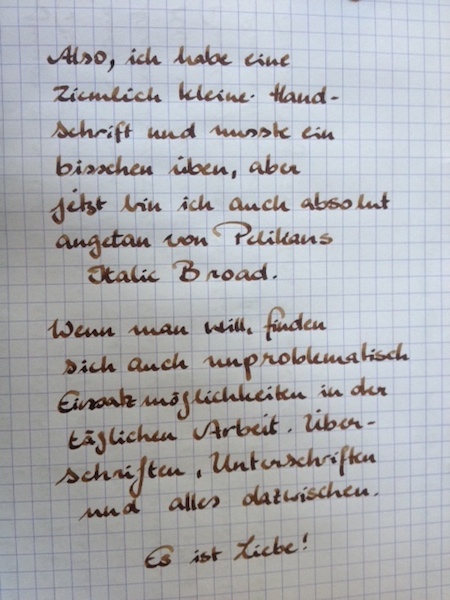 Also, ich habe eine
ziemlich kleine Hand-
schrift und musste ein
bisschen üben, aber
jetzt bin ich auch absolut
angetan von Pelikans
Italic Broad.
Wenn man will, finden
sich auch unproblematisch
Einsatzmöglichkeiten in der
täglichen Arbeit. Über-
schriften, Unterschriften
und alles dazwischen.
Es ist Liebe!